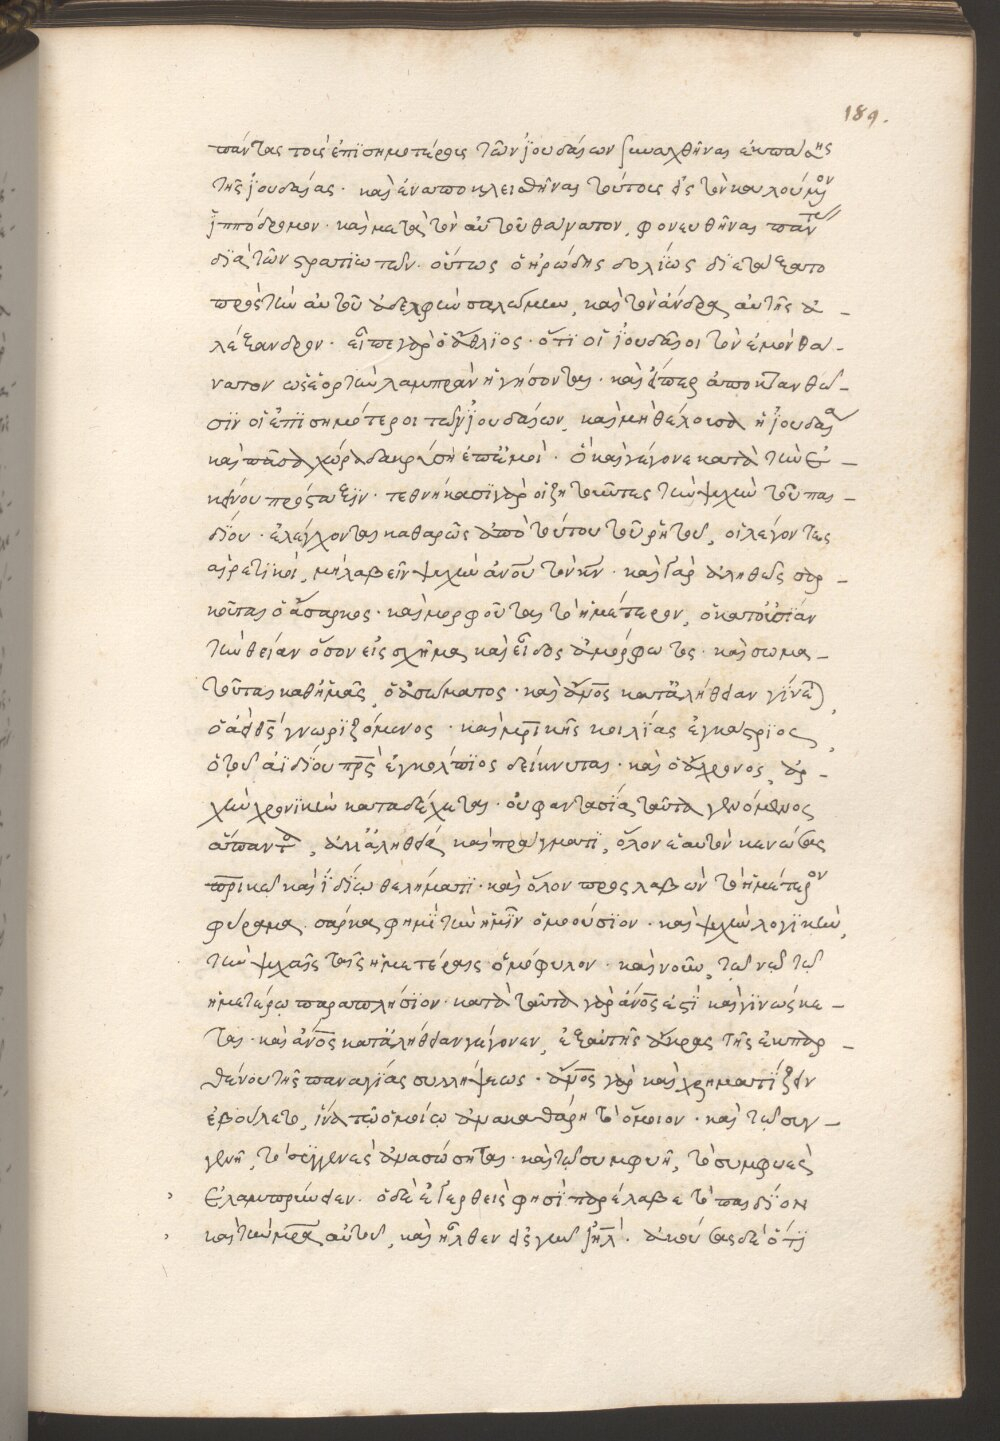 189.
πάντας τοὺς ἐπισημοτέρους τῶν ἰουδαίων συναχθῆναι ἐκ πάσης
τῆς ἰουδαίας · καὶ ἐναποκλεισθῆναι τούτοις εἰς τὸν καλούμενον
ἱππόδρομον · καὶ μετὰ τὸν αὐτοῦ θάνατον, φονευθῆναι πάντας
διὰ τῶν στρατιωτῶν · οὕτως ὁ ἡρώδης δολίως διετάξατο
πρὸς τὴν αὐτοῦ ἀδελφὴν σαλώμην, καὶ τὸν ἄνδρα αὐτῆς ἀ-
λέξανδρον · εἶπε γὰρ ὁ ἄθλιος · ὅτι οἱ ἰουδαῖοι τὸν ἐμὸν θά-
νατον ὡς ἑορτὴν λαμπρὰν ἡγήσονται · καὶ εἴπερ ἀποκτανθῶ-
σιν οἱ ἐπισημότεροι τῶν ἰουδαίων, καὶ μὴ θέλουσα ἡ ἰουδαία
καὶ πᾶσα χώρα δακρύσῃ ἐπ' ἐμοί · ὃ καὶ γέγονε κατὰ τὴν ἐ-
κείνου πρόσταξιν · τεθνήκασι γὰρ οἱ ζητοῦντες τὴν ψυχὴν τοῦ παι-
δίου · ἐλέγχονται καθαρῶς ἀπὸ τούτου τοῦ ῥητοῦ, οἱ λέγοντες
αἱρετικοί, μὴ λαβεῖν ψυχὴν ἀνου τὸν κν · καὶ γὰρ ἀληθῶς σαρ-
κοῦται ὁ ἄσαρκος · καὶ μορφοῦται τὸ ἡμέτερον, ὁ κατ' οὐσίαν
τὴν θείαν ὅσον εἰς σχῆμα καὶ εἶδος ἀμόρφωτος · καὶ σωμα-
τοῦται καθ' ἡμᾶς, ὁ ἀσώματος · καὶ ανος κατ' ἀλήθειαν γίνεται,
ὁ ἀεὶ θς γνωριζόμενος · καὶ μητρικῆς κοιλίας ἐγγάστριος,
ὁ τοῦ ἀϊδίου πρς ἐγκόλπιος δείκνυται · καὶ ὁ ἄχρονος, ἀρ-
χὴν χρονικὴν καταδέχεται · οὐ φαντασία ταῦτα γενόμενος
ἅπαντα, ἀλλ' ἀληθείᾳ καὶ πράγματι, ὅλον ἑαυτὸν κενώσας
πρικῶ καὶ ἰδίω θελήματι · καὶ ὅλον προσλαβὼν τὸ ἡμέτερον
φύραμα · σάρκα φημὶ τὴν ἡμῖν ὁμοούσιον · καὶ ψυχὴν λογικὴν,
τὴν ψυχαῖς ταῖς ἡμετέραις ὁμόφυλον · καὶ νοῦν, τῶ νῶ τῶ
ἡμετέρω παραπλήσιον · κατὰ ταῦτα γὰρ ανος ἐστὶ καὶ γινώσκε-
ται · καὶ ανος κατ' ἀλήθειαν γέγονεν, ἐξ αὐτῆς ἄκρας τῆς ἐκ παρ-
θένου τῆς παναγίας συλλήψεως · ανος γὰρ καὶ χρηματίζειν
ἐβούλετο, ἵνα τῶ ὁμοίω ἀνακαθάρῃ τὸ ὅμοιον · καὶ τῶ συγ-
γενῆ, τὸ συγγενὲς ἀνασώσηται · καὶ τῶ συμφυῆ, τὸ συμφυὲς
ἐλαμπρύνειεν · ὁ δὲ ἐγερθεὶς φησὶ παρέλαβε τὸ παιδίον
καὶ τὴν μρα αὐτοῦ, καὶ ἦλθεν εἰς γῆν ιηλ · ἀκούσας δὲ ὅτι